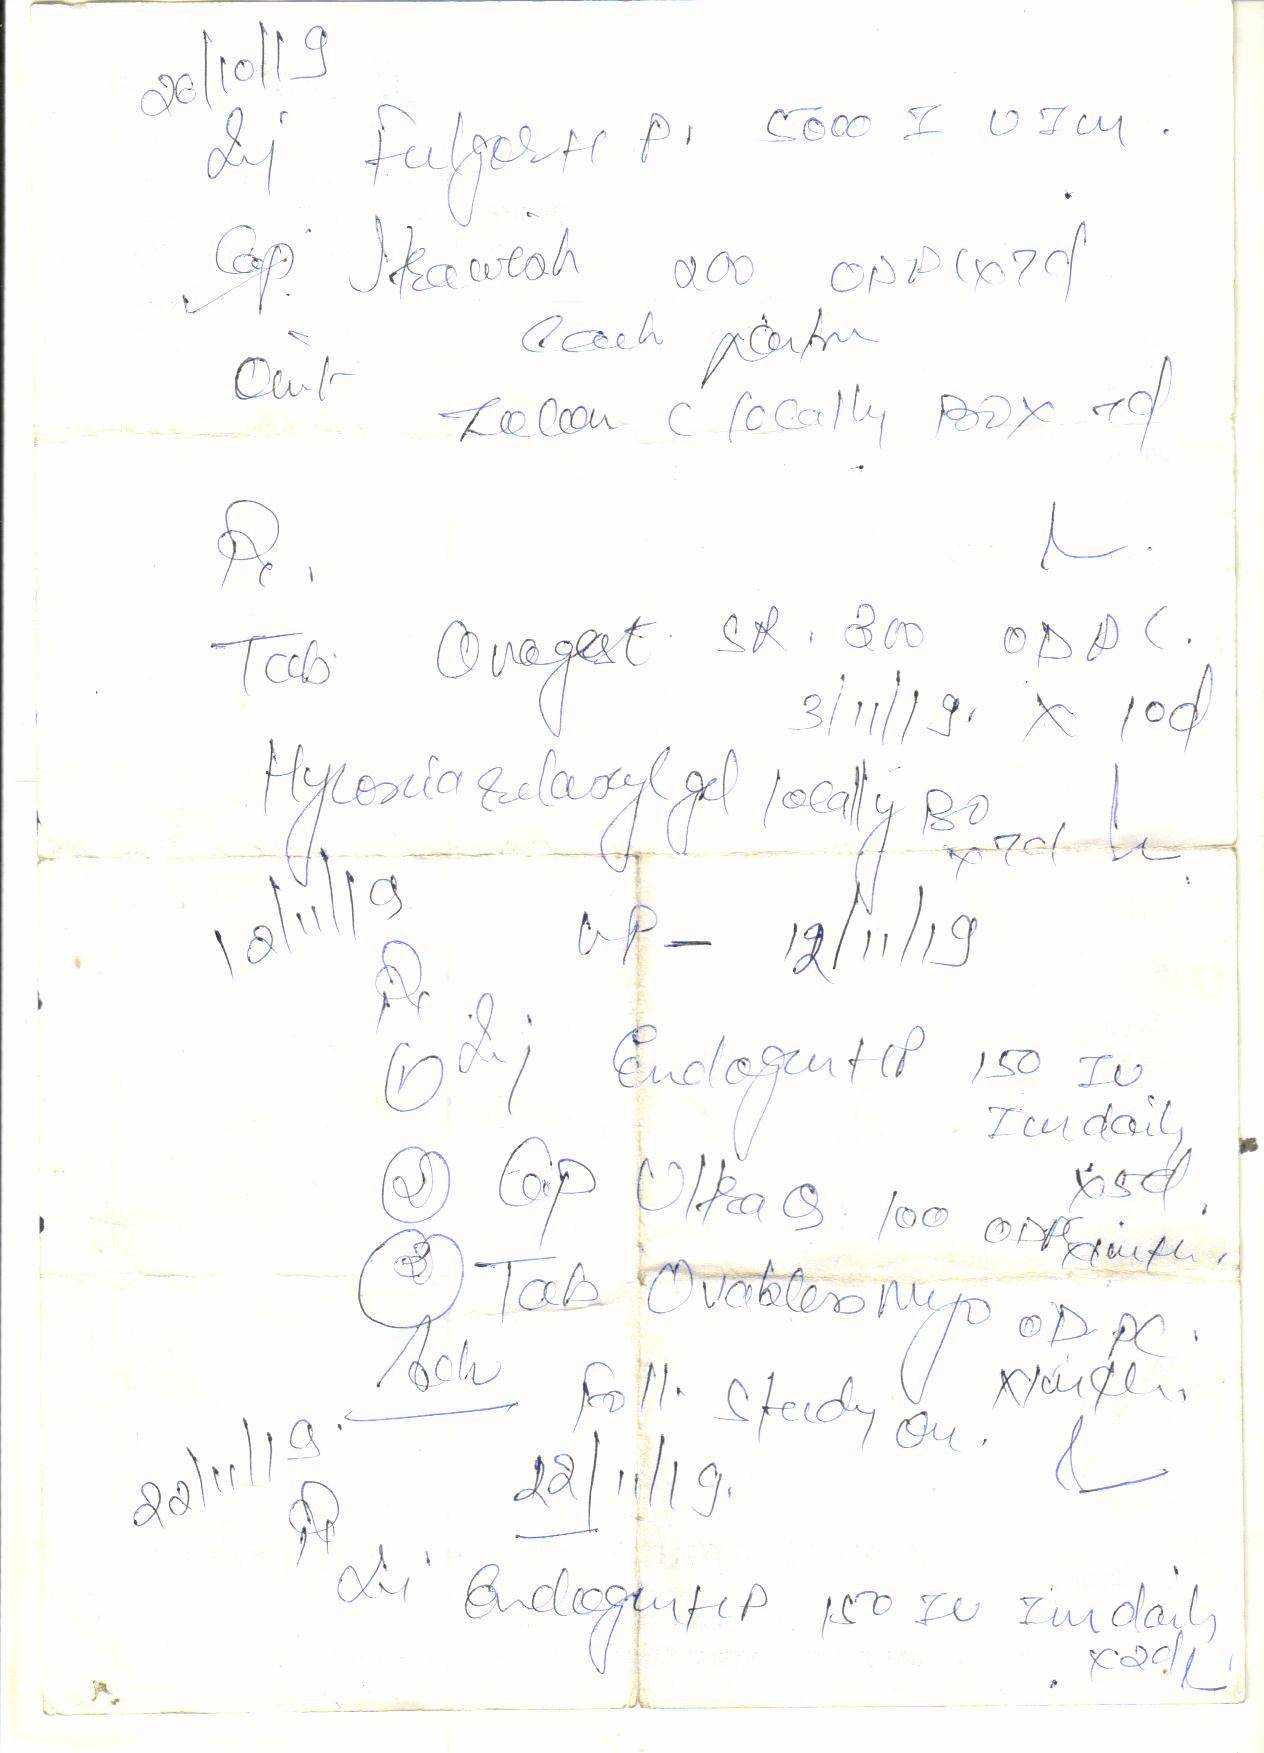 20/10/19
Inj Fulgor HP. 5000 I U Im.
Cap. 200 OD PC x 7d
Each
Oint
Zocon C locally BD x 7d
Rx.
Tab Ovagest SR. 300 OD PC.
3/11/19. x 10d
gel locally BD
x 7d
12/11/19
LMP - 12/11/19
Rx
① Inj Endogen HP 150 IU
Im daily
x 5d.
② Cap Ultra Q 100 OD PC
x 1 month.
③ Tab Ovabless Myo OD PC.
x 1 month.
Adv
Foll. Study on.
22/11/19.
22/11/19.
Rx
Inj Endogen HP 150 IU Im daily
x 2d